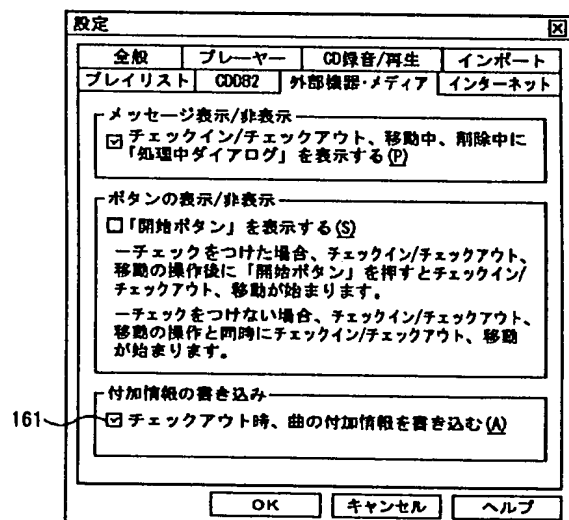 設定
全般 プレーヤー CD録音/再生 インポート
プレイリスト CDDB2 外部機器・メディア インターネット
メッセージ表示/非表示
チェックイン/チェックアウト、移動中、削除中に
「処理中ダイアログ」を表示する(P)
ボタンの表示/非表示
「開始ボタン」を表示する(S)
ーチェックをつけた場合、チェックイン/チェックアウト、
移動の操作後に「開始ボタン」を押すとチェックイン/
チェックアウト、移動が始まります。
ーチェックをつけない場合、チェックイン/チェックアウト、
移動の操作と同時にチェックイン/チェックアウト、移動
が始まります。
付加情報の書き込み
161
チェックアウト時、曲の付加情報を書き込む(A)
OK キャンセル ヘルプ